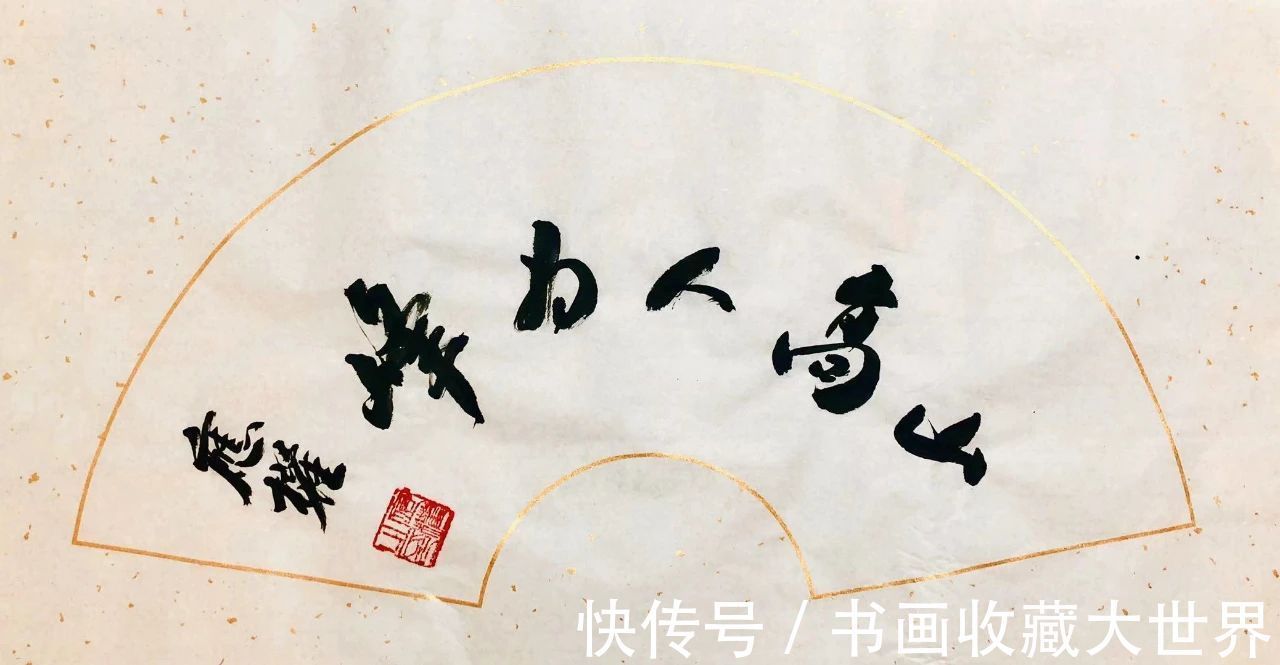 山高人为峰
快传号 / 书画收藏大世界